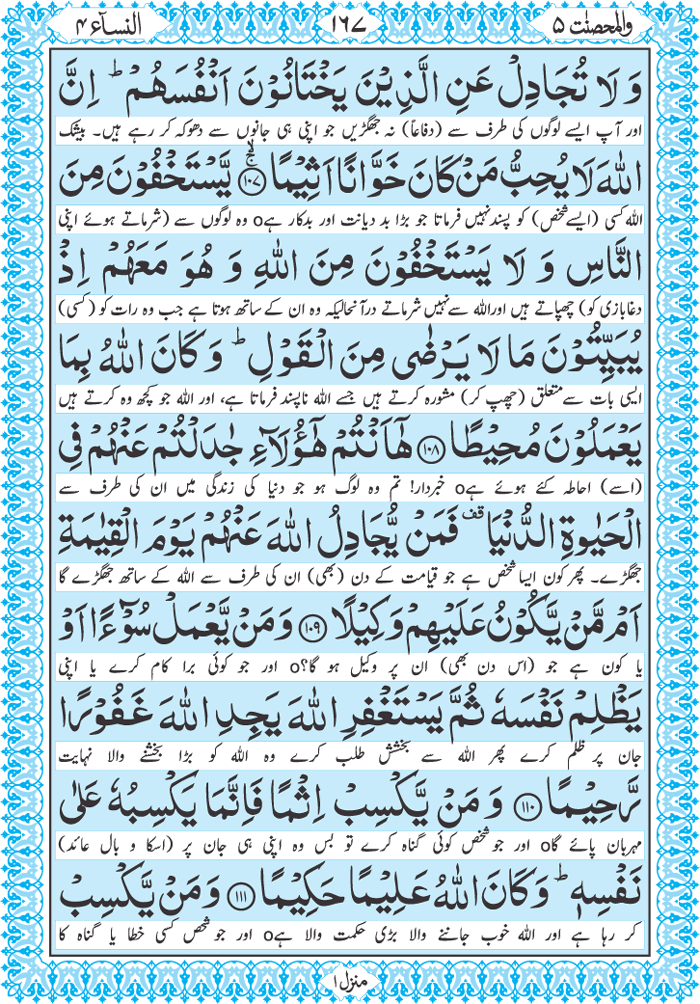 والمحصنٰت ۵
۱۶۷
النسآء ۴
وَ لَا تُجَادِلْ عَنِ الَّذِيْنَ يَخْتَانُوْنَ اَنْفُسَهُمْ ؕ اِنَّ
اور آپ ایسے لوگوں کی طرف سے (دفاعاً) نہ جھگڑیں جو اپنی ہی جانوں سے دھوکہ کر رہے ہیں۔ بیشک
اللّٰهَ لَا يُحِبُّ مَنْ كَانَ خَوَّانًا اَثِيْمًا ۙۚ ۱۰۷ يَّسْتَخْفُوْنَ مِنَ
اللہ کسی (ایسے شخص) کو پسند نہیں فرماتا جو بڑا بد دیانت اور بدکار ہے o وہ لوگوں سے (شرماتے ہوئے اپنی
النَّاسِ وَ لَا يَسْتَخْفُوْنَ مِنَ اللّٰهِ وَ هُوَ مَعَهُمْ اِذْ
دغابازی کو) چھپاتے ہیں اور اللہ سے نہیں شرماتے درآنحالیکہ وہ ان کے ساتھ ہوتا ہے جب وہ رات کو (کسی)
يُبَيِّتُوْنَ مَا لَا يَرْضٰى مِنَ الْقَوْلِ ؕ وَ كَانَ اللّٰهُ بِمَا
ایسی بات سے متعلق (چھپ کر) مشورہ کرتے ہیں جسے اللہ ناپسند فرماتا ہے، اور اللہ جو کچھ وہ کرتے ہیں
يَعْمَلُوْنَ مُحِيْطًا ۱۰۸ هٰۤاَنْتُمْ هٰۤؤُلَآءِ جٰدَلْتُمْ عَنْهُمْ فِي
(اسے) احاطہ کئے ہوئے ہے o خبردار! تم وہ لوگ ہو جو دنیا کی زندگی میں ان کی طرف سے
الْحَيٰوةِ الدُّنْيَا قف فَمَنْ يُّجَادِلُ اللّٰهَ عَنْهُمْ يَوْمَ الْقِيٰمَةِ
جھگڑے۔ پھر کون ایسا شخص ہے جو قیامت کے دن (بھی) ان کی طرف سے اللہ کے ساتھ جھگڑے گا
اَمْ مَّنْ يَّكُوْنُ عَلَيْهِمْ وَكِيْلًا ۱۰۹ وَ مَنْ يَّعْمَلْ سُوْٓءًا اَوْ
یا کون ہے جو (اس دن بھی) ان پر وکیل ہو گا؟ o اور جو کوئی برا کام کرے یا اپنی
يَظْلِمْ نَفْسَهٗ ثُمَّ يَسْتَغْفِرِ اللّٰهَ يَجِدِ اللّٰهَ غَفُوْرًا
جان پر ظلم کرے پھر اللہ سے بخشش طلب کرے وہ اللہ کو بڑا بخشنے والا نہایت
رَّحِيْمًا ۱۱۰ وَ مَنْ يَّكْسِبْ اِثْمًا فَاِنَّمَا يَكْسِبُهٗ عَلٰى
مہربان پائے گا o اور جو شخص کوئی گناہ کرے تو بس وہ اپنی ہی جان پر (اسکا و بال عائد)
نَفْسِهٖ ؕ وَ كَانَ اللّٰهُ عَلِيْمًا حَكِيْمًا ۱۱۱ وَ مَنْ يَّكْسِبْ
کر رہا ہے اور اللہ خوب جاننے والا بڑی حکمت والا ہے o اور جو شخص کسی خطا یا گناہ کا
منزل ۱